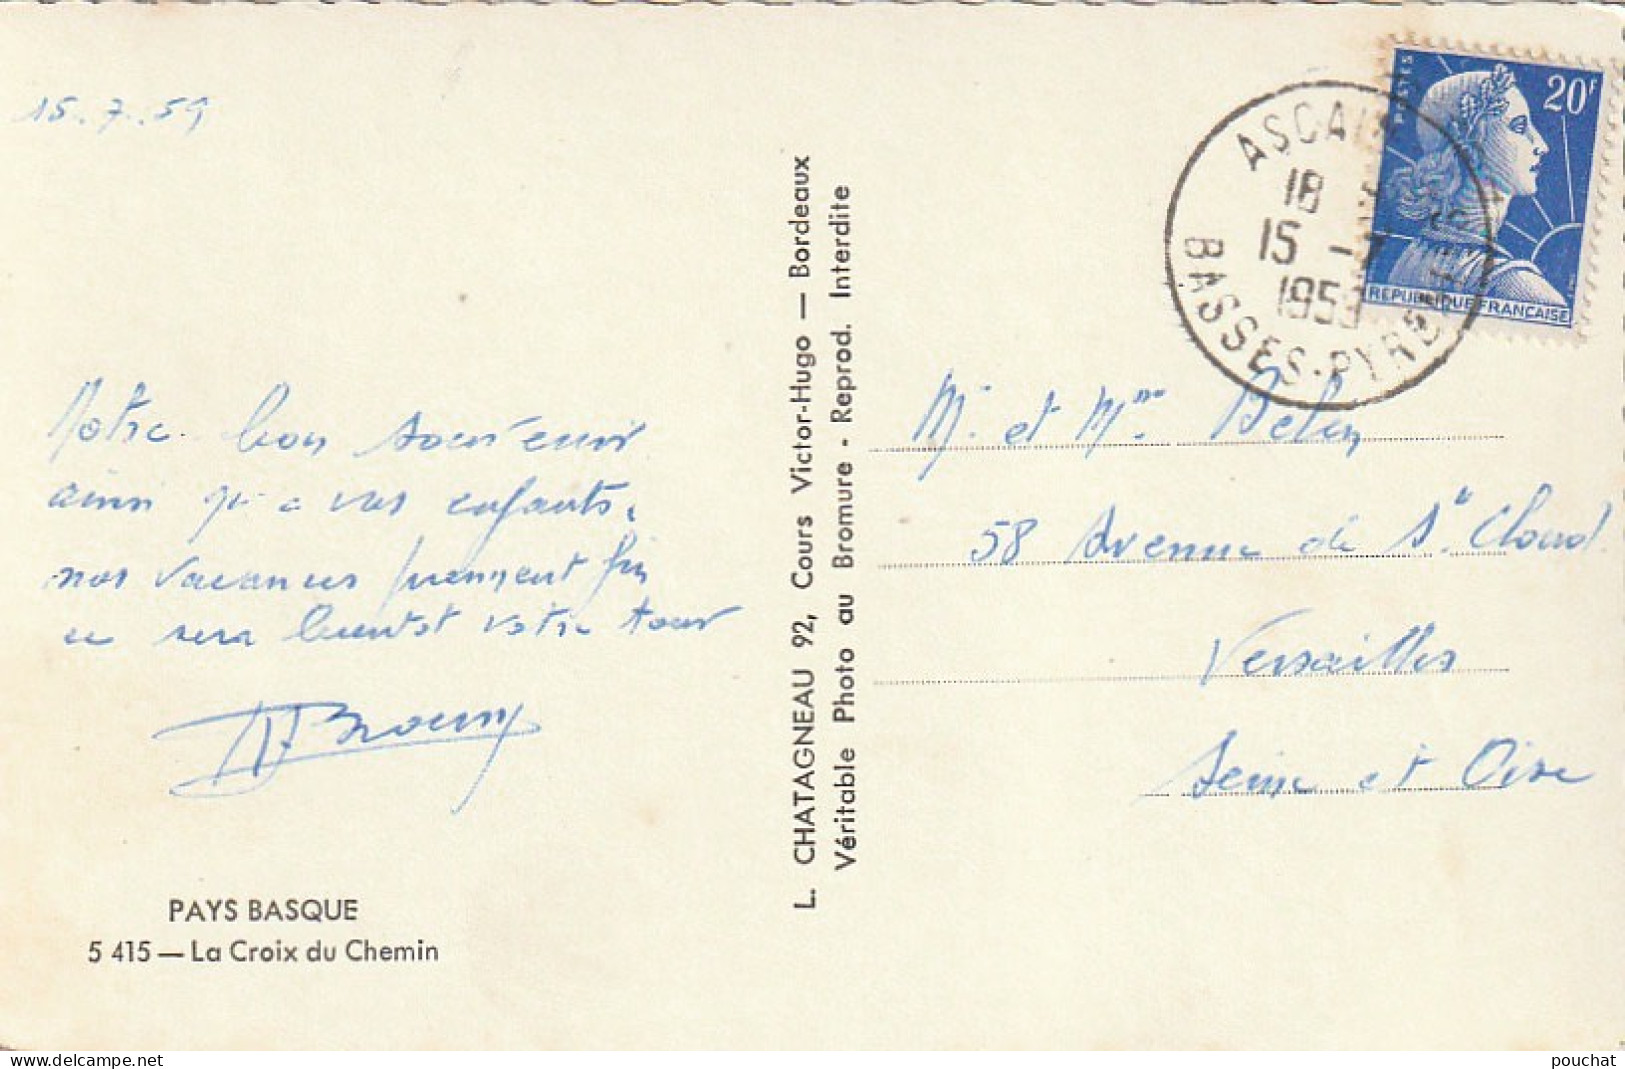 15.7.59
Notre bon souvenir
ainsi qu'a vos enfants.
nos vacances prennent fin
ce sera bientot votre tour
PAYS BASQUE
5 415 — La Croix du Chemin
L. CHATAGNEAU 92, Cours Victor-Hugo — Bordeaux
Véritable Photo au Bromure - Reprod. Interdite
POSTES
20F
REPUBLIQUE FRANÇAISE
ASCAIN
18
15 -7
1959
BASSES-PYRÉNÉES
Mr et Mme
58 Avenue de St Cloud
Versailles
Seine et Oise
www.delcampe.net
pouchat